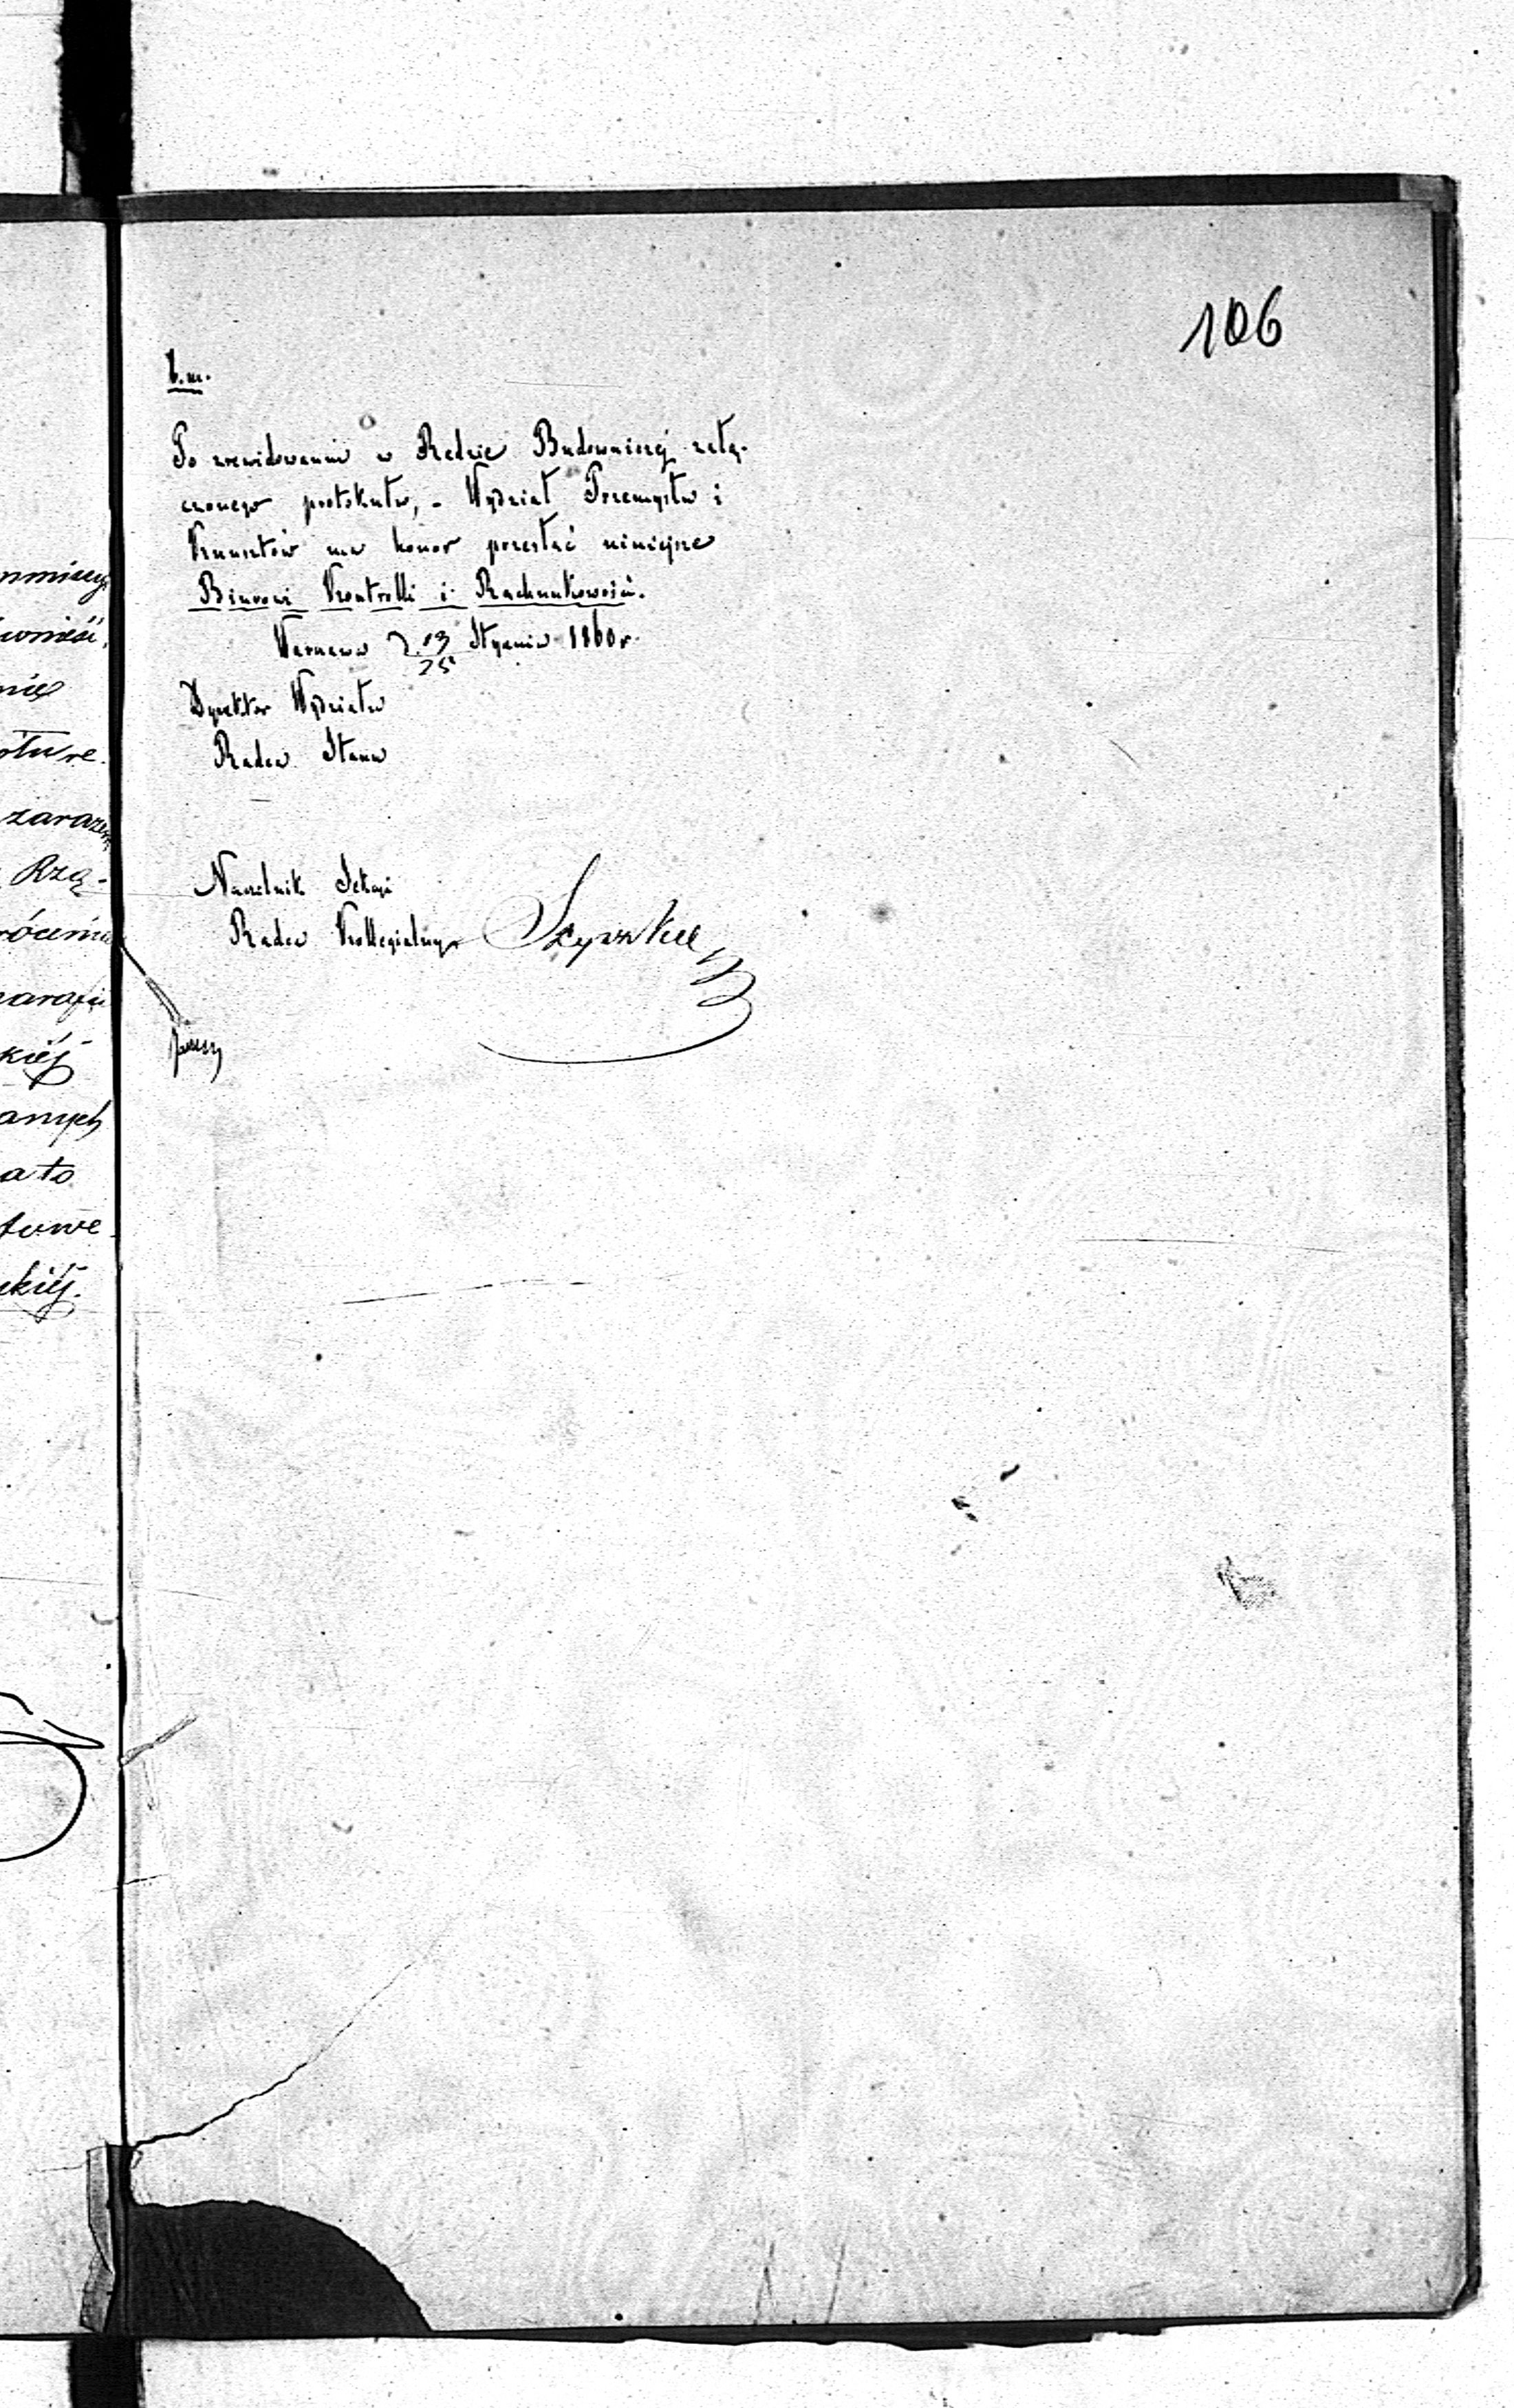 106
b.m.
Po zrewidowaniu w Radzie Budowniczej załą-
czonego protokułu, - Wydział Przemysłu i
Kunsztów ma honor przesłać niniejsze
Biurowi Kontrolli i Rachunkowości.
Warszawa d. 13/25 Stycznia 1860 r.
Dyrektor Wydziału
Radca Stanu
Naczelnik Sekcji
Radca Kollegialny
ście
nie
zaraz
Rzą-
kiéj
anych
ato
towe